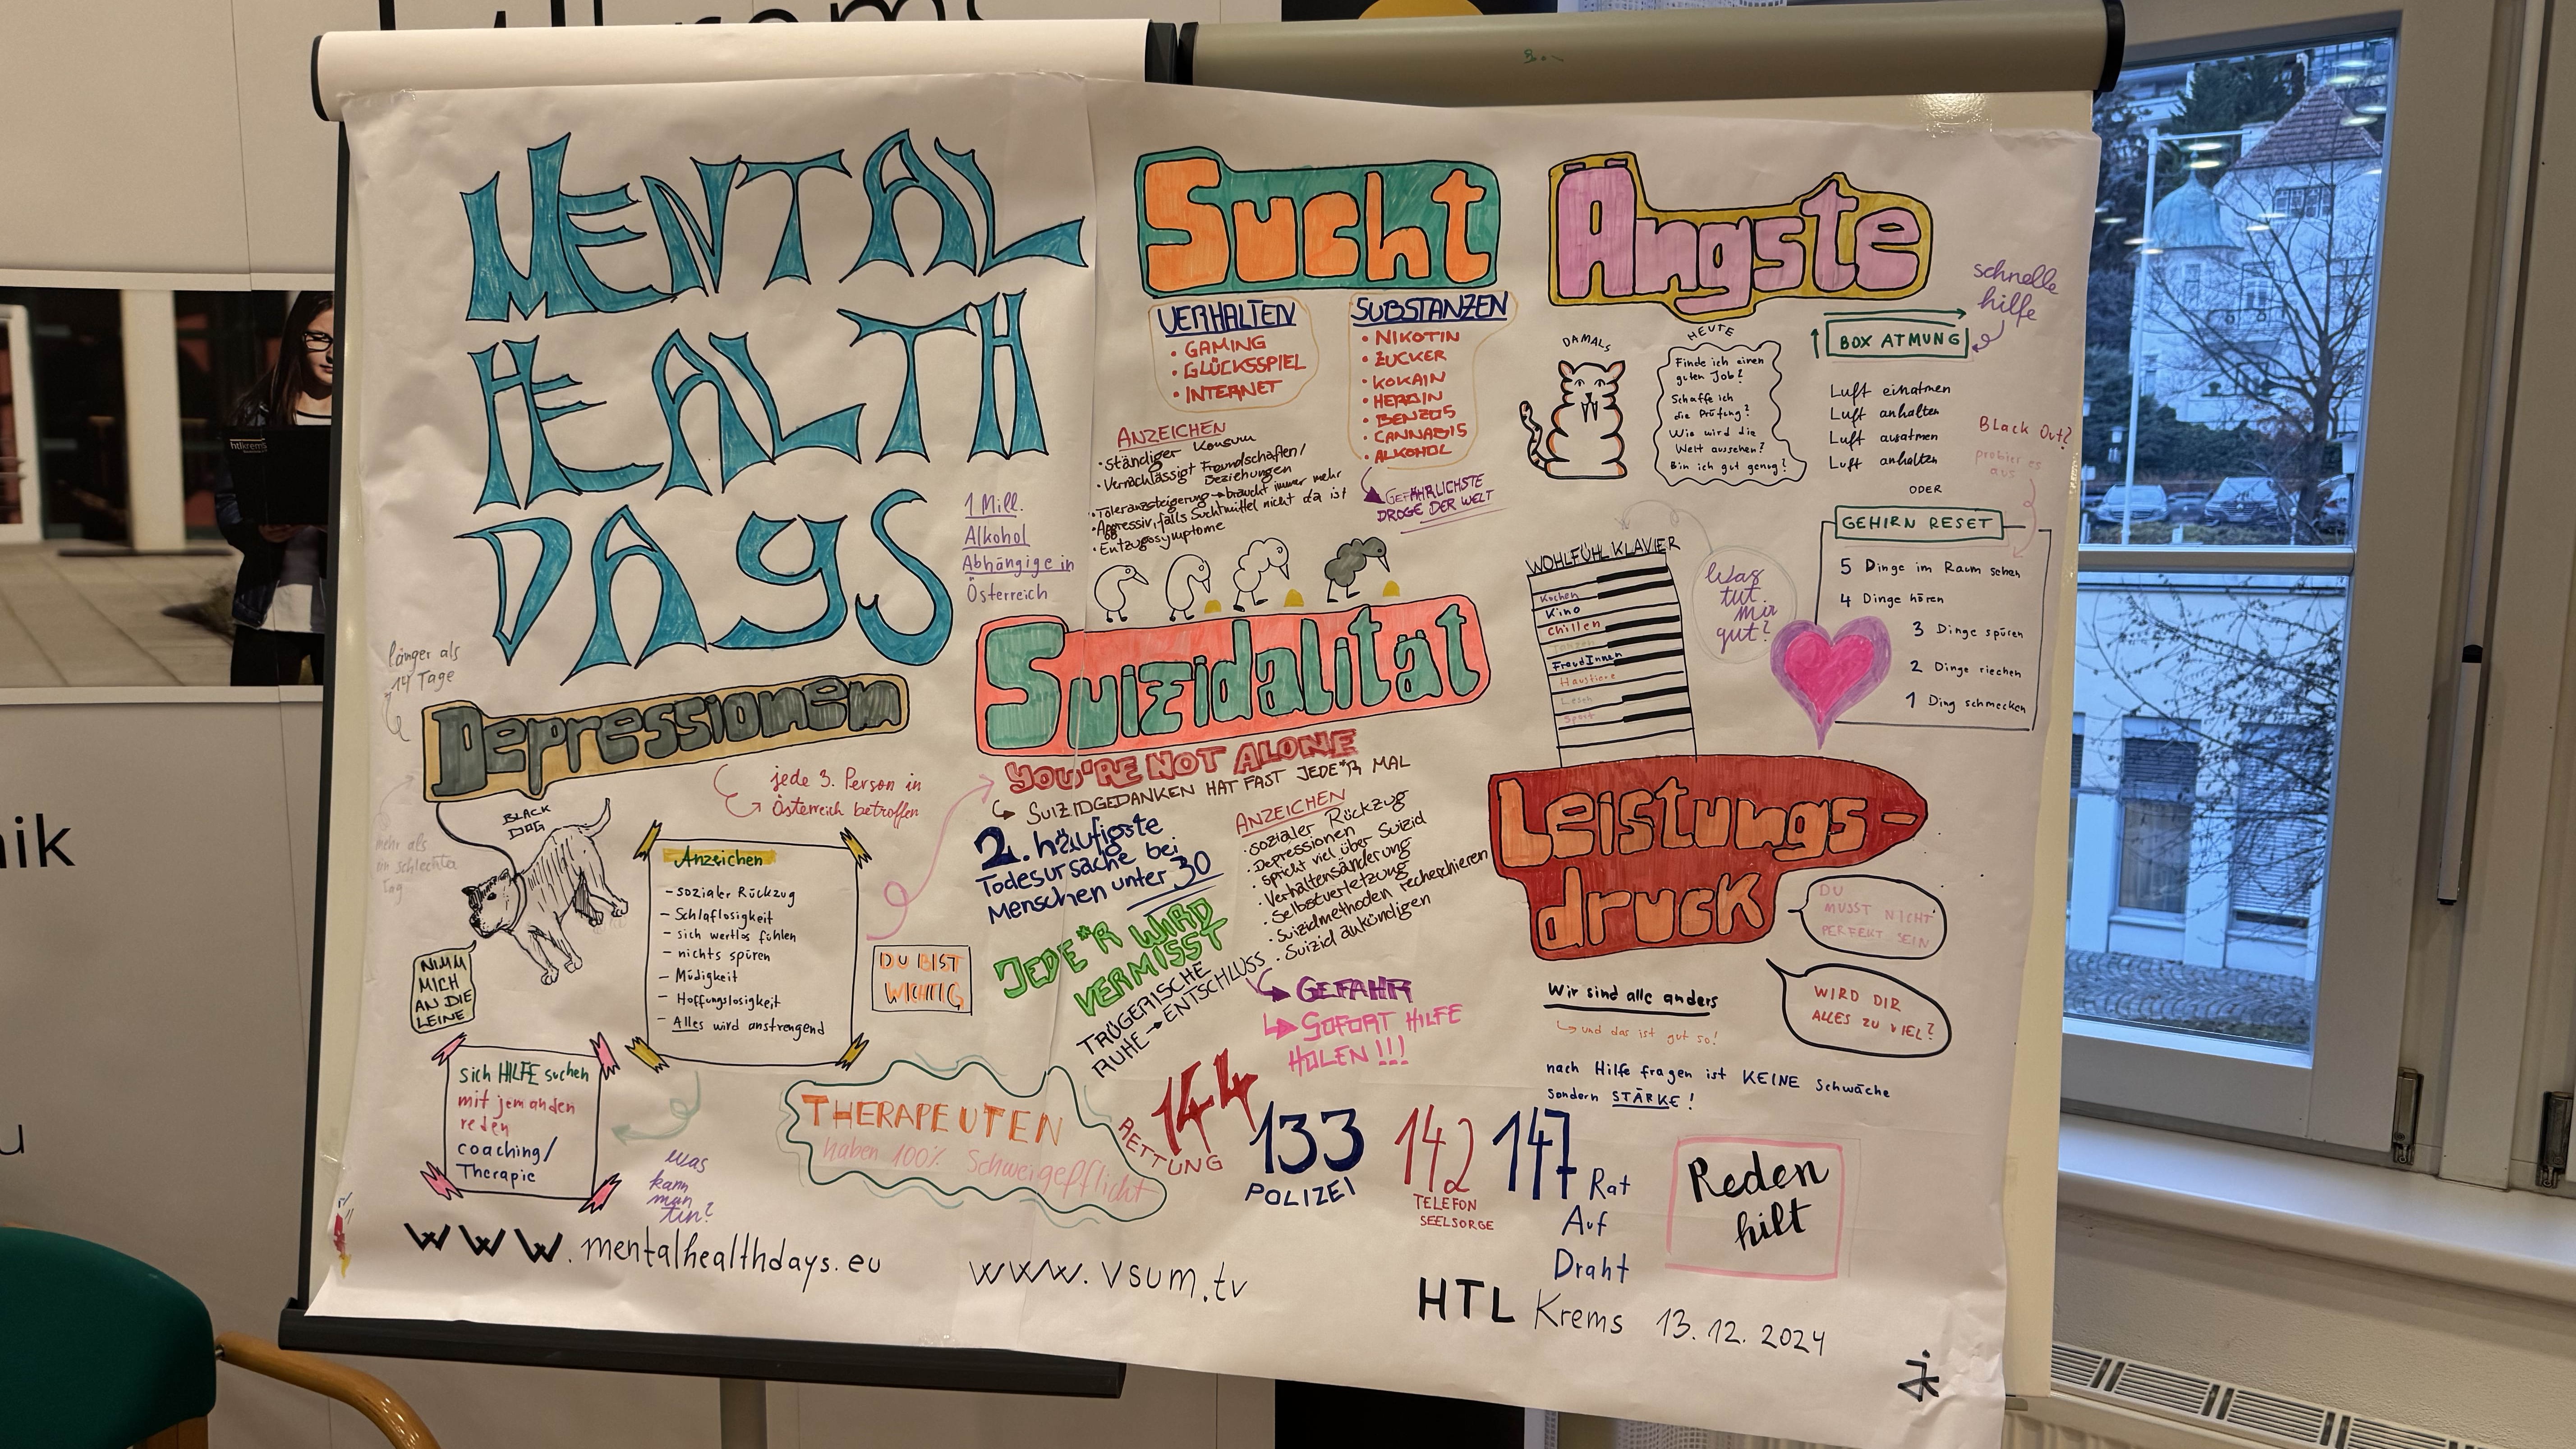 MENTAL
HEALTH
DAYS
1 Mill.
Alkohol
Abhängige in
Österreich
Sucht
VERHALTEN
• GAMING
• GLÜCKSSPIEL
• INTERNET
SUBSTANZEN
• NIKOTIN
• ZUCKER
• KOKAIN
• HEROIN
• BENZOS
• CANNABIS
• ALKOHOL
GEFÄHRLICHSTE
DROGE DER WELT
ANZEICHEN
• Ständiger Konsum
• Vernachlässigt Freundschaften/
Beziehungen
• Toleranzsteigerung → braucht immer mehr
• Aggressiv, falls Suchtmittel nicht da ist
• Entzugssymptome
Ängste
DAMALS
HEUTE
Finde ich einen
guten Job?
Schaffe ich
die Prüfung?
Wie wird die
Welt aussehen?
Bin ich gut genug?
schnelle
hilfe
BOX ATMUNG
Luft einatmen
Luft anhalten
Luft ausatmen
Luft anhalten
ODER
Black Out?
probier es
aus
GEHIRN RESET
5 Dinge im Raum sehen
4 Dinge hören
3 Dinge spüren
2 Dinge riechen
1 Ding schmecken
WOHLFÜHL KLAVIER
Kochen
Kino
Chillen
Tanzen
FreudInnen
Haustiere
Lesen
Sport
Was
tut
mir
gut?
länger als
14 Tage
Depressionen
mehr als
ein schlechter
Tag
jede 3. Person in
Österreich betroffen
BLACK
DOG
NIMM
MICH
AN DIE
LEINE
Anzeichen
- sozialer Rückzug
- Schlaflosigkeit
- sich wertlos fühlen
- nichts spüren
- Müdigkeit
- Hoffungslosigkeit
- Alles wird anstrengend
DU BIST
WICHTIG
sich HILFE suchen
mit jemanden
reden
coaching/
Therapie
was
kann
man
tun?
Suizidalität
YOU'RE NOT ALONE
SUIZIDGEDANKEN HAT FAST JEDE*R MAL
2. häufigste
Todesursache bei
Menschen unter 30
JEDE*R WIRD
VERMISST
TRÜGERISCHE
RUHE → ENTSCHLUSS
ANZEICHEN
• sozialer Rückzug
• Depressionen
• spricht viel über Suizid
• Verhaltensänderung
• Selbstverletzung
• Suizidmethoden recherchieren
• Suizid ankündigen
GEFAHR
SOFORT HILFE
HOLEN!!!
THERAPEUTEN
haben 100% Schweigepflicht
Leistungs-
druck
DU
MUSST NICHT
PERFEKT SEIN
WIRD DIR
ALLES ZU VIEL?
Wir sind alle anders
und das ist gut so!
nach Hilfe fragen ist KEINE Schwäche
sondern STÄRKE!
144
RETTUNG
133
POLIZEI
142
TELEFON
SEELSORGE
147 Rat
Auf
Draht
Reden
hilt
www.mentalhealthdays.eu
www.vsum.tv
HTL Krems 13.12.2024
htlkrems
nik
u